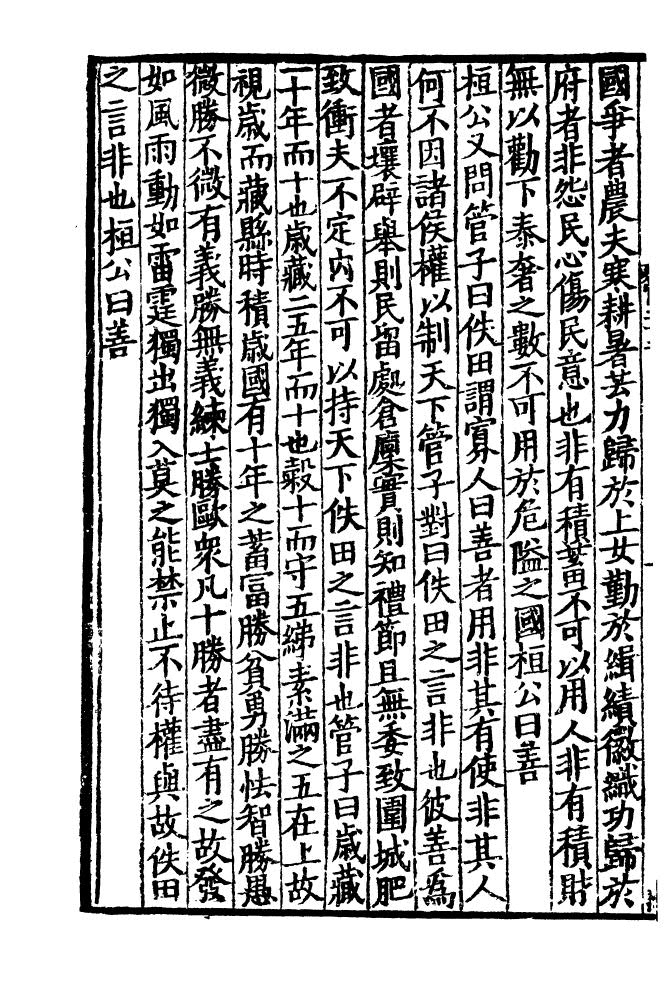 國爭者農夫寒耕暑芸力歸於上女勤於緝績徽織功歸於
府者非怨民心傷民意也非有積蓄不可以用人非有積財
無以勸下泰奢之數不可用於危隘之國桓公曰善
桓公又問管子曰佚田謂寡人曰善者用非其有使非其人
何不因諸侯權以制天下管子對曰佚田之言非也彼善為
國者壤辟舉則民留處倉廩實則知禮節且無委致圍城肥
致衝夫不定內不可以持天下佚田之言非也管子曰歲藏
一十年而十也歲藏二五年而十也穀十而守五綈素滿之五在上故
視歲而藏縣時積歲國有十年之蓄富勝貧勇勝怯智勝愚
微勝不微有義勝無義練士勝歐衆凡十勝者盡有之故發
如風雨動如雷霆獨出獨入莫之能禁止不待權與故佚田
之言非也桓公曰善